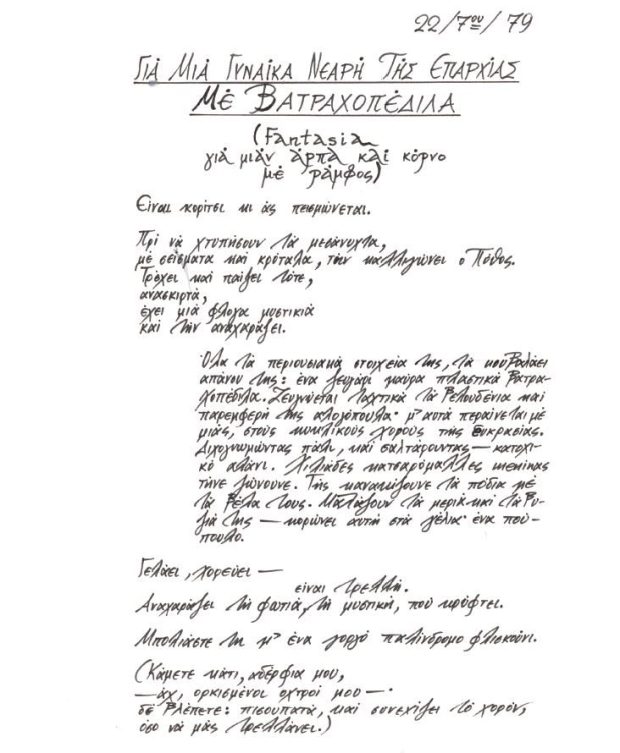 22/7ου/79
ΓΙΑ ΜΙΑ ΓΥΝΑΙΚΑ ΝΕΑΡΗ ΤΗΣ ΕΠΑΡΧΙΑΣ
ΜΕ ΒΑΤΡΑΧΟΠΕΔΙΛΑ
(Fantasia
γιά μιάν άρπα καί κόρνο
μέ ράμφος)
Είναι κορίτσι κι άς πεισμώνεται.
Πρί νά χτυπήσουν τά μεσάνυχτα,
μέ σείσματα καί κρόταλα, τήν καλλιγώνει ο Πόθος.
Τρέχει καί παίζει τότε,
ανασκιρτά,
έχει μιά φλόγα μυστικιά
καί τήν αναχαράζει.
Όλα τά περιουσιακά στοιχεία της, τά κουβαλάει
απάνου της: ένα ζευγάρι μαύρα πλαστικά βατρα-
χοπέδιλα. Ζευγνύεται ταχτικά τά βελουδένια καί
παρεμφερή της αλογόπουλα· μ' αυτά περαίνεται μέ
μιάς, στούς κυκλικούς χορούς της ευκρασίας.
Διχογνωμώντας πάλι, καί σαλτάροντας — κατοχι-
κό αλάνι. Χιλιάδες κατσαρόμαλλες
τήνε ζώνουνε. Τής τά πόδια μέ
τά βέλα τους. τά μεριά καί τά βυ-
ζιά της — κορώνει αυτή στά γέλια· ένα πού-
πουλο.
Γελάει, χορεύει —
είναι τρελλή.
Αναχαράζει τή φωτιά, τή μυστική, πού κρύφτει.
Μπολιάστε τη μ' ένα γοργό παλίνδρομο φλισκούνι.
(Κάμετε κάτι, αδέρφια μου,
— άχ, ορκισμένοι οχτροί μου —·
δέ βλέπετε: πισουπατά, καί συνεχίζει τό χορόν,
όσο νά μάς τρελλάνει.)